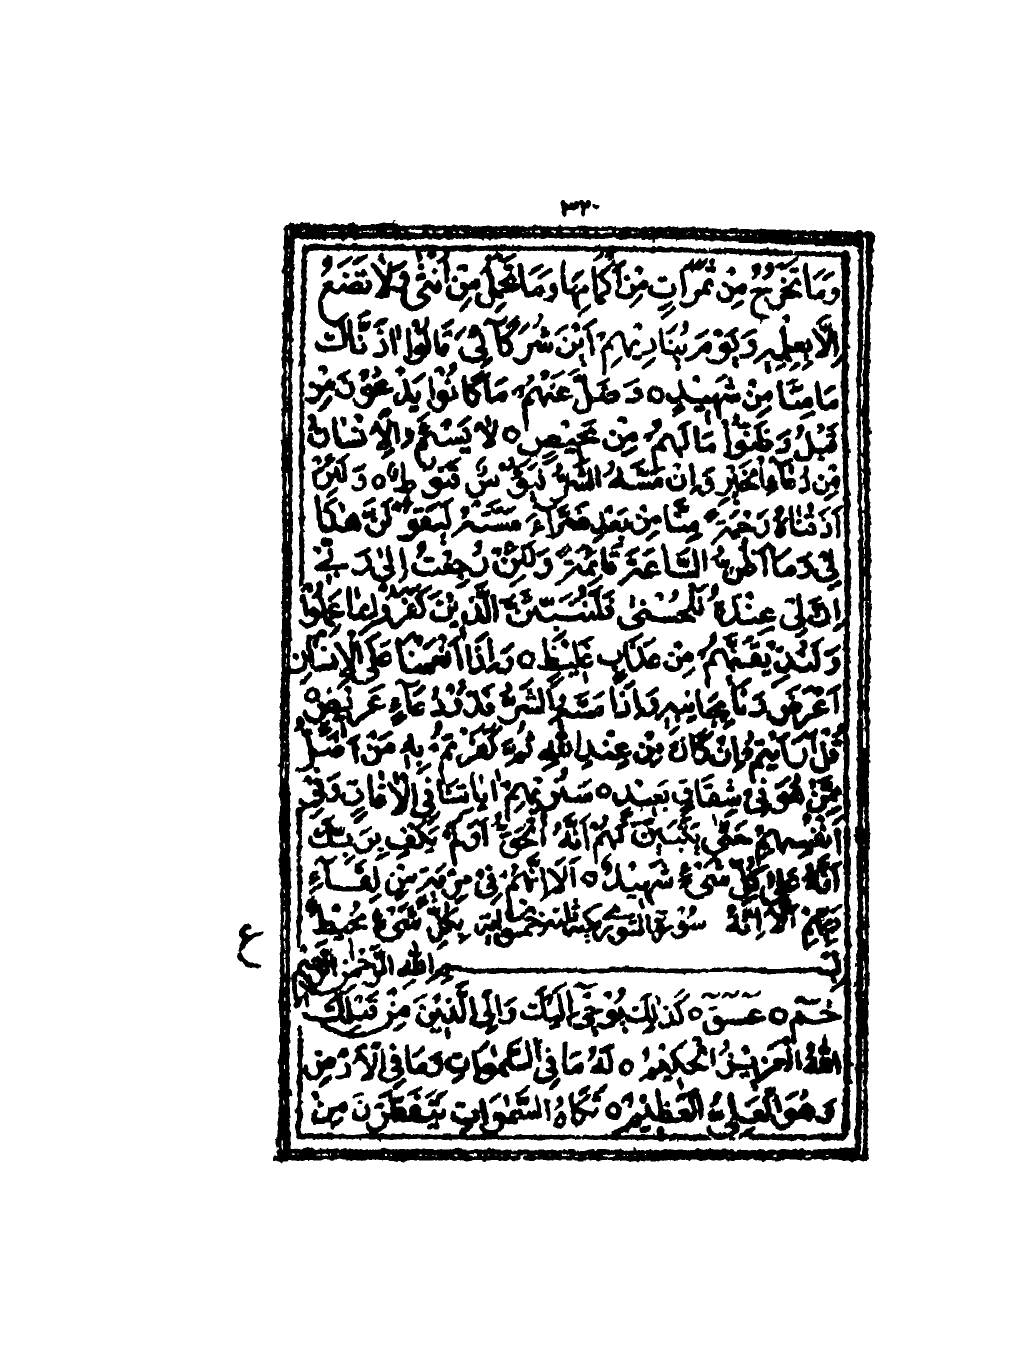 ٣٢٠
وَمَا تَخْرُجُ مِنْ ثَمَرَاتٍ مِنْ أَكْمَامِهَا وَمَا تَحْمِلُ مِنْ أُنْثَىٰ وَلَا تَضَعُ
إِلَّا بِعِلْمِهِ وَيَوْمَ يُنَادِيهِمْ أَيْنَ شُرَكَائِي قَالُوا آذَنَّاكَ
مَا مِنَّا مِنْ شَهِيدٍ ۝ وَضَلَّ عَنْهُمْ مَا كَانُوا يَدْعُونَ مِنْ
قَبْلُ وَظَنُّوا مَا لَهُمْ مِنْ مَحِيصٍ ۝ لَا يَسْأَمُ الْإِنْسَانُ
مِنْ دُعَاءِ الْخَيْرِ وَإِنْ مَسَّهُ الشَّرُّ فَيَئُوسٌ قَنُوطٌ ۝ وَلَئِنْ
أَذَقْنَاهُ رَحْمَةً مِنَّا مِنْ بَعْدِ ضَرَّاءَ مَسَّتْهُ لَيَقُولَنَّ هَٰذَا
لِي وَمَا أَظُنُّ السَّاعَةَ قَائِمَةً وَلَئِنْ رُجِعْتُ إِلَىٰ رَبِّي
إِنَّ لِي عِنْدَهُ لَلْحُسْنَىٰ فَلَنُنَبِّئَنَّ الَّذِينَ كَفَرُوا بِمَا عَمِلُوا
وَلَنُذِيقَنَّهُمْ مِنْ عَذَابٍ غَلِيظٍ ۝ وَإِذَا أَنْعَمْنَا عَلَى الْإِنْسَانِ
أَعْرَضَ وَنَأَىٰ بِجَانِبِهِ وَإِذَا مَسَّهُ الشَّرُّ فَذُو دُعَاءٍ عَرِيضٍ ۝
قُلْ أَرَأَيْتُمْ إِنْ كَانَ مِنْ عِنْدِ اللَّهِ ثُمَّ كَفَرْتُمْ بِهِ مَنْ أَضَلُّ
مِمَّنْ هُوَ فِي شِقَاقٍ بَعِيدٍ ۝ سَنُرِيهِمْ آيَاتِنَا فِي الْآفَاقِ وَفِي
أَنْفُسِهِمْ حَتَّىٰ يَتَبَيَّنَ لَهُمْ أَنَّهُ الْحَقُّ أَوَلَمْ يَكْفِ بِرَبِّكَ
أَنَّهُ عَلَىٰ كُلِّ شَيْءٍ شَهِيدٌ ۝ أَلَا إِنَّهُمْ فِي مِرْيَةٍ مِنْ لِقَاءِ
رَبِّهِمْ أَلَا إِنَّهُ بِكُلِّ شَيْءٍ مُحِيطٌ
ع
بِسْمِ اللَّهِ الرَّحْمٰنِ الرَّحِيمِ
حٰمٓ ۝ عٓسٓقٓ ۝ كَذَٰلِكَ يُوحِي إِلَيْكَ وَإِلَى الَّذِينَ مِنْ قَبْلِكَ
اللَّهُ الْعَزِيزُ الْحَكِيمُ ۝ لَهُ مَا فِي السَّمٰوَاتِ وَمَا فِي الْأَرْضِ
وَهُوَ الْعَلِيُّ الْعَظِيمُ ۝ تَكَادُ السَّمٰوَاتُ يَتَفَطَّرْنَ مِنْ